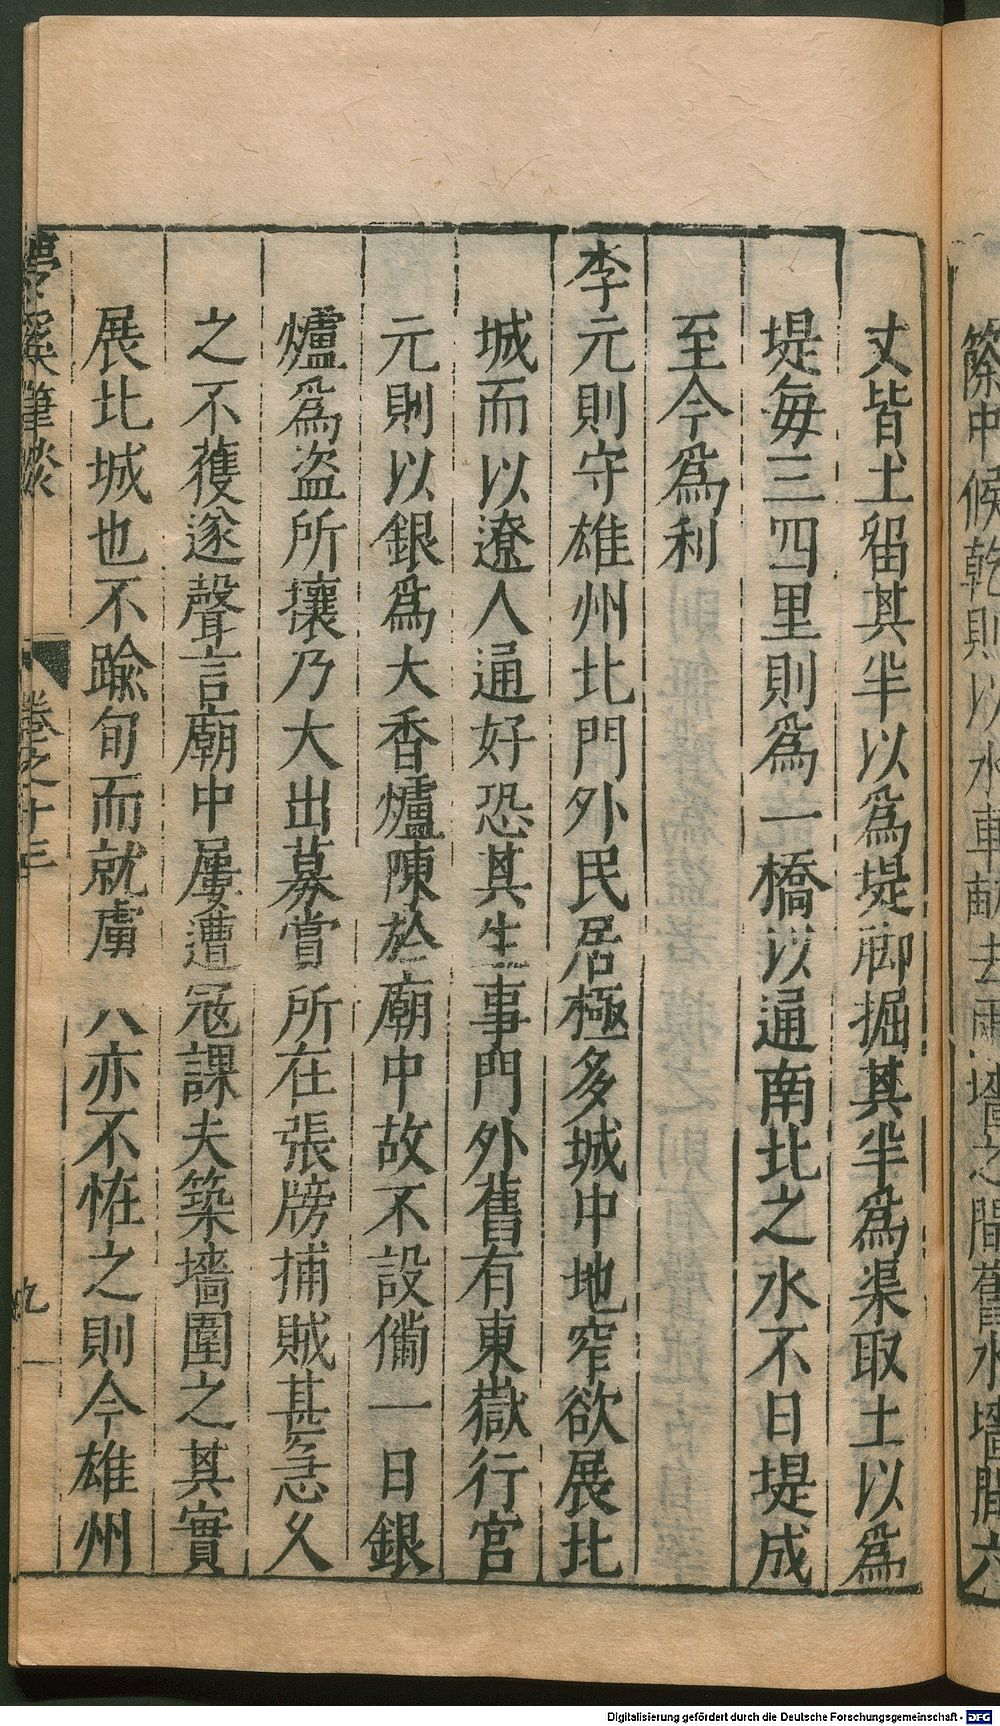 篨中候乾則以水車畎去兩墻之間舊水墻間六
丈皆土留其半以為堤脚掘其半為渠取土以為
堤每三四里則為一橋以通南北之水不日堤成
至今為利
李元則守雄州北門外民居極多城中地窄欲展北
城而以遼人通好恐其生事門外舊有東嶽行宮
元則以銀為大香爐陳於廟中故不設備一日銀
爐為盜所壞乃大出募賞所在張牓捕賊甚急久
之不獲遂聲言廟中屢遭寇課夫築墻圍之其實
展北城也不踰旬而就虜人亦不恠之則今雄州
夢溪筆談 卷之十三 九
Digitalisierung gefördert durch die Deutsche Forschungsgemeinschaft - DFG